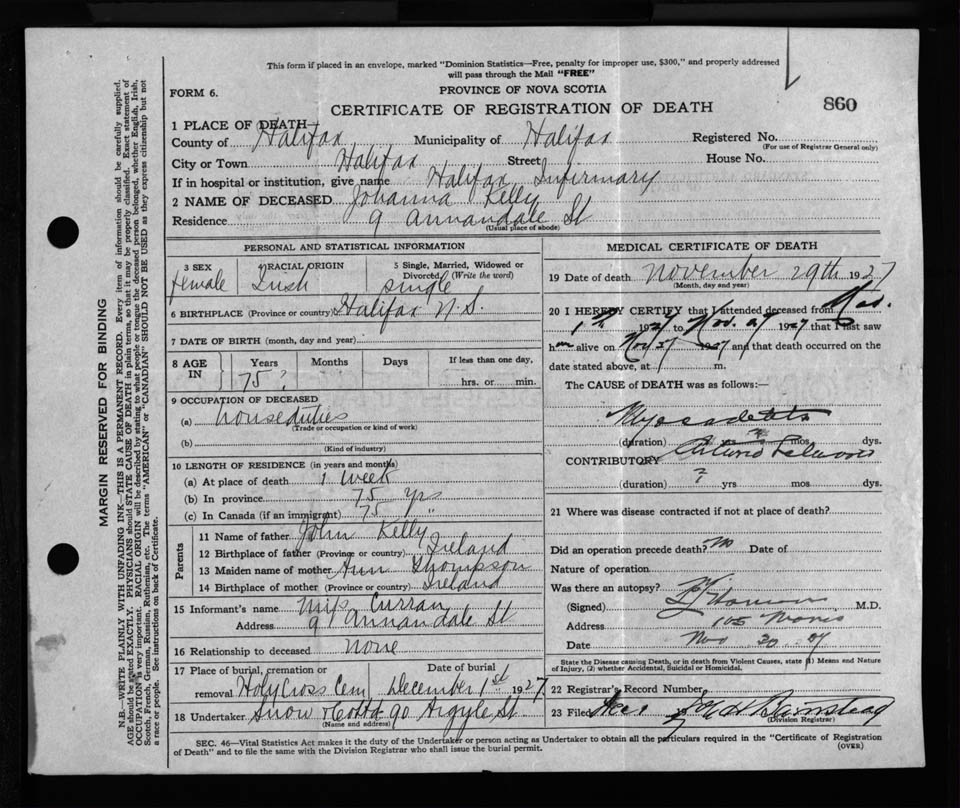 This form if placed in an envelope, marked "Dominion Statistics—Free, penalty for improper use, $300," and properly addressed
will pass through the Mail "FREE"
FORM 6.
PROVINCE OF NOVA SCOTIA
CERTIFICATE OF REGISTRATION OF DEATH
860
1 PLACE OF DEATH
County of Halifax Municipality of Halifax Registered No.
(For use of Registrar General only)
City or Town Halifax Street House No.
If in hospital or institution, give name Halifax Infirmary
2 NAME OF DECEASED Johanna Kelly
Residence 9 Annandale St
(Usual place of abode)
PERSONAL AND STATISTICAL INFORMATION
3 SEX female
RACIAL ORIGIN Irish
5 Single, Married, Widowed or Divorced (Write the word) single
6 BIRTHPLACE (Province or country) Halifax N.S.
7 DATE OF BIRTH (month, day and year)
8 AGE IN Years Months Days If less than one day,
75? hrs. or min.
9 OCCUPATION OF DECEASED
(a) house duties
(Trade or occupation or kind of work)
(b)
(Kind of industry)
10 LENGTH OF RESIDENCE (in years and months)
(a) At place of death 1 week
(b) In province 75 yrs
(c) In Canada (if an immigrant) 75 "
Parents
11 Name of father John Kelly
12 Birthplace of father (Province or country) Ireland
13 Maiden name of mother Ann Thompson
14 Birthplace of mother (Province or country) Ireland
15 Informant's name Miss Curran
Address 9 Annandale St
16 Relationship to deceased none
17 Place of burial, cremation or removal Holy Cross Cem
Date of burial December 1st 1927
18 Undertaker Snow 90 Argyle St
(Name and address)
MEDICAL CERTIFICATE OF DEATH
19 Date of death November 29th 1927
(Month, day and year)
20 I HEREBY CERTIFY that I attended deceased from
1927 to Nov. 29 1927 that I last saw
h alive on Nov 1927 and that death occurred on the
date stated above, at m.
The CAUSE of DEATH was as follows:—
Myocarditis
(duration) yrs ? mos dys.
CONTRIBUTORY
(duration) ? yrs mos dys.
21 Where was disease contracted if not at place of death?
Did an operation precede death? No Date of
Nature of operation
Was there an autopsy?
(Signed) M.D.
Address 105 Morris
Date Nov 30 27
State the Disease causing Death, or in death from Violent Causes, state (1) Means and Nature
of Injury, (2) whether Accidental, Suicidal or Homicidal.
22 Registrar's Record Number
23 Filed Dec 1 Barnstead
(Division Registrar)
SEC. 46—Vital Statistics Act makes it the duty of Undertaker or person acting as Undertaker to obtain all the particulars required in the "Certificate of Registration
of Death" and to file the same with the Division Registrar who shall issue the burial permit.
(OVER)
MARGIN RESERVED FOR BINDING
N.B.—WRITE PLAINLY WITH UNFADING INK—THIS IS A PERMANENT RECORD. Every item of information should be carefully supplied.
AGE should be stated EXACTLY. PHYSICIANS should STATE CAUSE OF DEATH in plain terms, so that it may be properly classified. Exact statement of
OCCUPATION is very important. RACIAL ORIGIN will be described by stating to what people or tongue the deceased person belonged, whether English, Irish,
Scotch, French, German, Russian, Ruthenian, etc. The terms "AMERICAN" or "CANADIAN" SHOULD NOT BE USED as they express citizenship but not
a race or people. See instructions on back of Certificate.